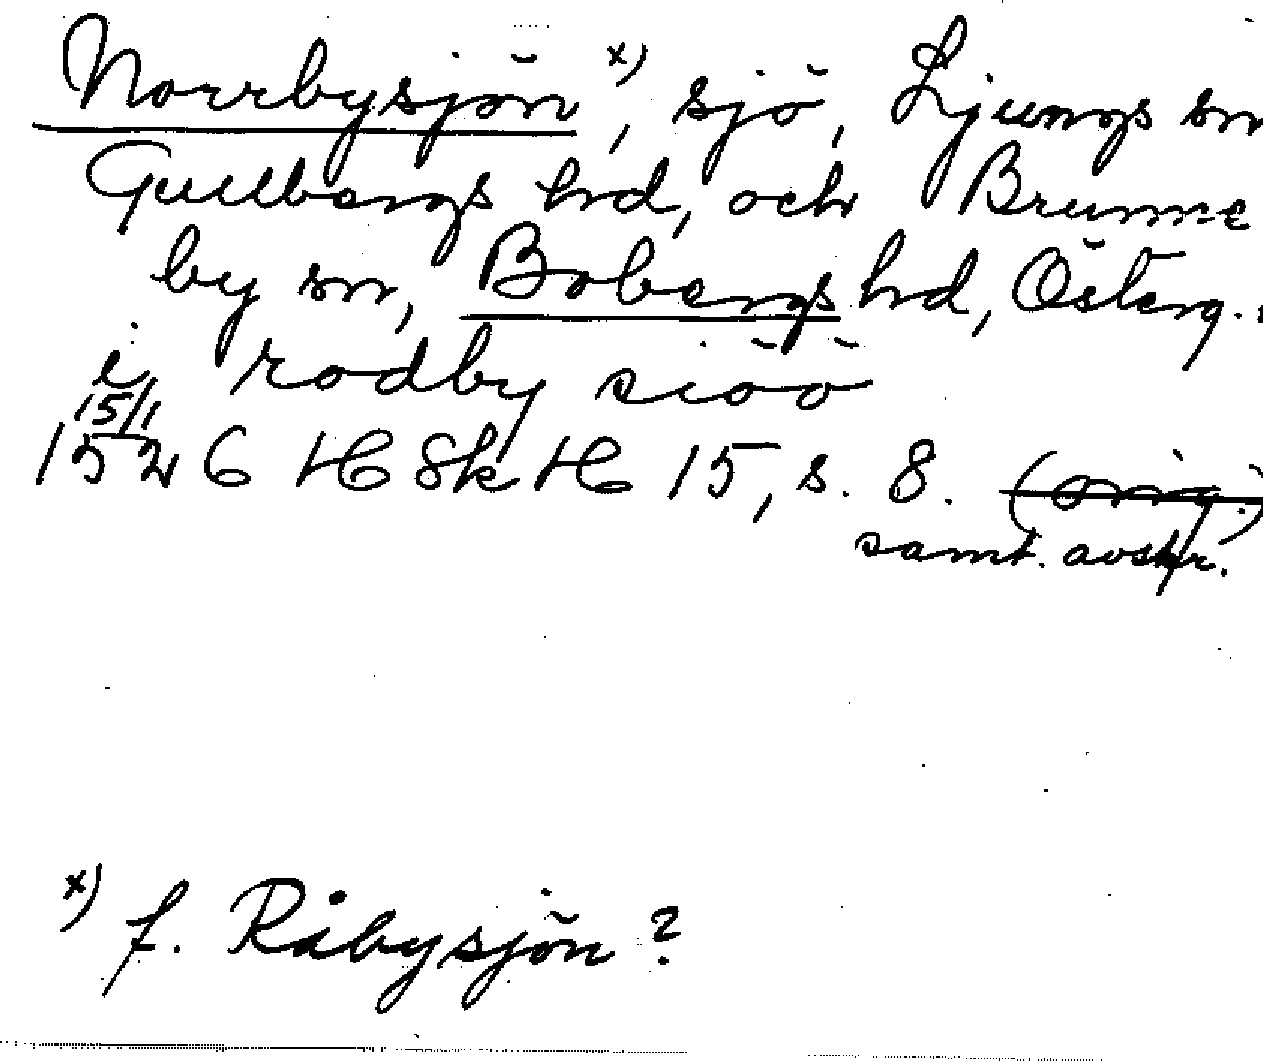 Norrbysjön x), sjö, Ljungs sn
Gullbergs hrd, och Brunne
by sn, Bobergs hrd, Österg.
i rodby siöö
15/1
1526 HSkH 15, s. 8. (orig.)
samt. avskr.
x) f. Råbysjön?